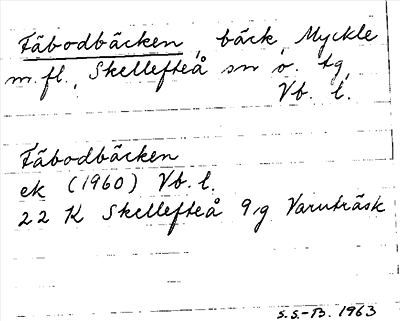 Fäbodbäcken, bäck, Myckle
m.fl., Skellefteå sn o. tg,
Vb. l.
Fäbodbäcken
ek (1960) Vb. l.
22 K Skellefteå 9,g Varuträsk
S.S.-B. 1963